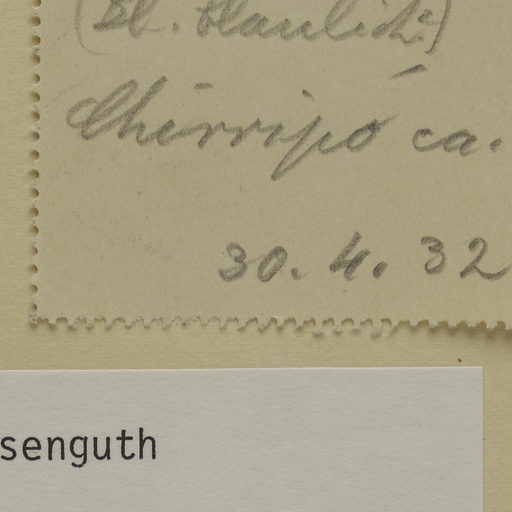 (Bl. blaulich?)
Chirripó ca.
30. 4. 32
senguth